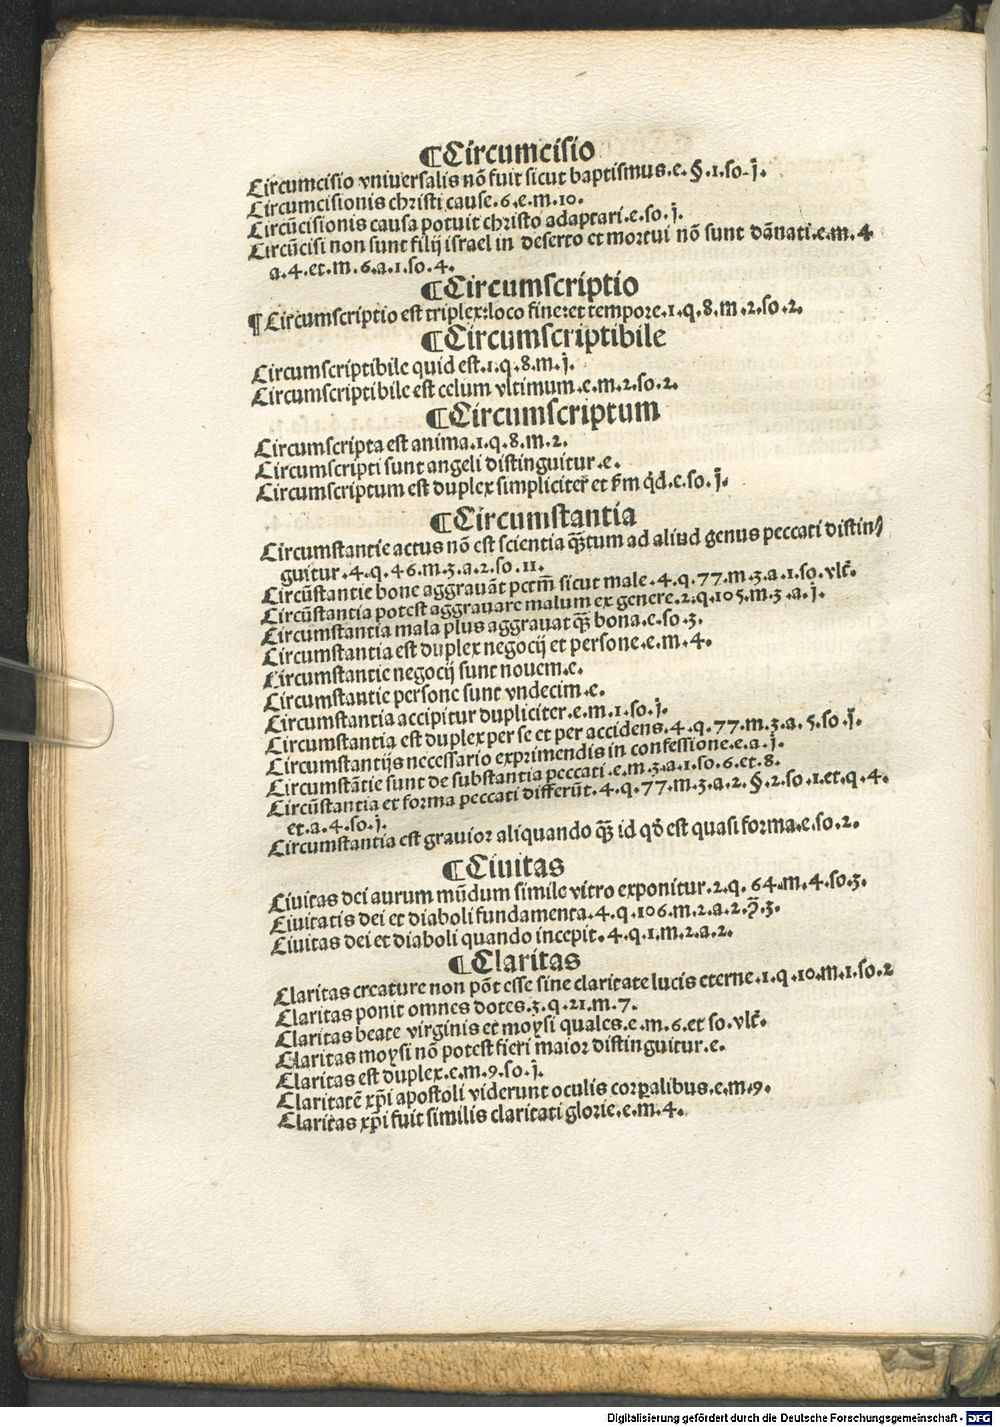 ¶Circumcisio
Circumcisio vniuersalis nõ fuit sicut baptismus.e.§.1.so.j̃.
Circumcisionis christi cause.6.e.m.10.
Circũcisionis causa potuit christo adaptari.e.so.j̃.
Circũcisi non sunt filij israel in deserto et mortui nõ sunt dãnati.e.m.4
a.4.et.m.6.a.1.so.4.
¶Circumscriptio
¶Circumscriptio est triplex:loco fine:et tempore.1.q.8.m.2.so.2.
¶Circumscriptibile
Circumscriptibile quid est.1.q.8.m.j̃.
Circumscriptibile est celum vltimum.e.m.2.so.2.
¶Circumscriptum
Circumscripta est anima.1.q.8.m.2.
Circumscripti sunt angeli distinguitur.e.
Circumscriptum est duplex simpliciter et ẜm qd̃.e.so.j̃.
¶Circumstantia
Circumstantie actus nõ est scientia q̃tum ad aliud genus peccati distin⸗
guitur.4.q.46.m.3.a.2.so.11.
Circũstantie bone aggrauãt pctm̃ sicut male.4.q.77.m.3.a.1.so.vlt̃.
Circũstantia potest aggrauare malum ex genere.2.q.105.m.3.a.j̃.
Circumstantia mala plus aggrauat q̃ bona.e.so.3.
Circumstantia est duplex negocij et persone.e.m.4.
Circumstantie negocij sunt nouem.e.
Circumstantie persone sunt vndecim.e.
Circumstantia accipitur dupliciter.e.m.1.so.j̃.
Circumstantia est duplex per se et per accidens.4.q.77.m.3.a.5.so.j̃.
Circumstantijs necessario exprimendis in confessione.e.a.j̃.
Circumstãtie sunt de substantia peccati.e.m.3.a.1.so.6.et.8.
Circũstantia et forma peccati differũt.4.q.77.m.3.a.2.§.2.so.1.et.q.4.
et.a.4.so.j̃.
Circumstantia est grauior aliquando q̃ id qd̃ est quasi forma.e.so.2.
¶Ciuitas
Ciuitas dei aurum mũdum simile vitro exponitur.2.q.64.m.4.so.3.
Ciuitatis dei et diaboli fundamenta.4.q.106.m.2.a.2.p̃.3.
Ciuitas dei et diaboli quando incepit.4.q.1.m.2.a.2.
¶Claritas
Claritas creature non põt esse sine claritate lucis eterne.1.q.10.m.1.so.2
Claritas ponit omnes dotes.3.q.21.m.7.
Claritas beate virginis et moysi quales.e.m.6.et so.vlt̃.
Claritas moysi nõ potest fieri maior distinguitur.e.
Claritas est duplex.e.m.9.so.j̃.
Claritatẽ xp̃i apostoli viderunt oculis corꝑalibus.e.m.9.
Claritas xp̃i fuit similis claritati glorie.e.m.4.
Digitalisierung gefördert durch die Deutsche Forschungsgemeinschaft - DFG